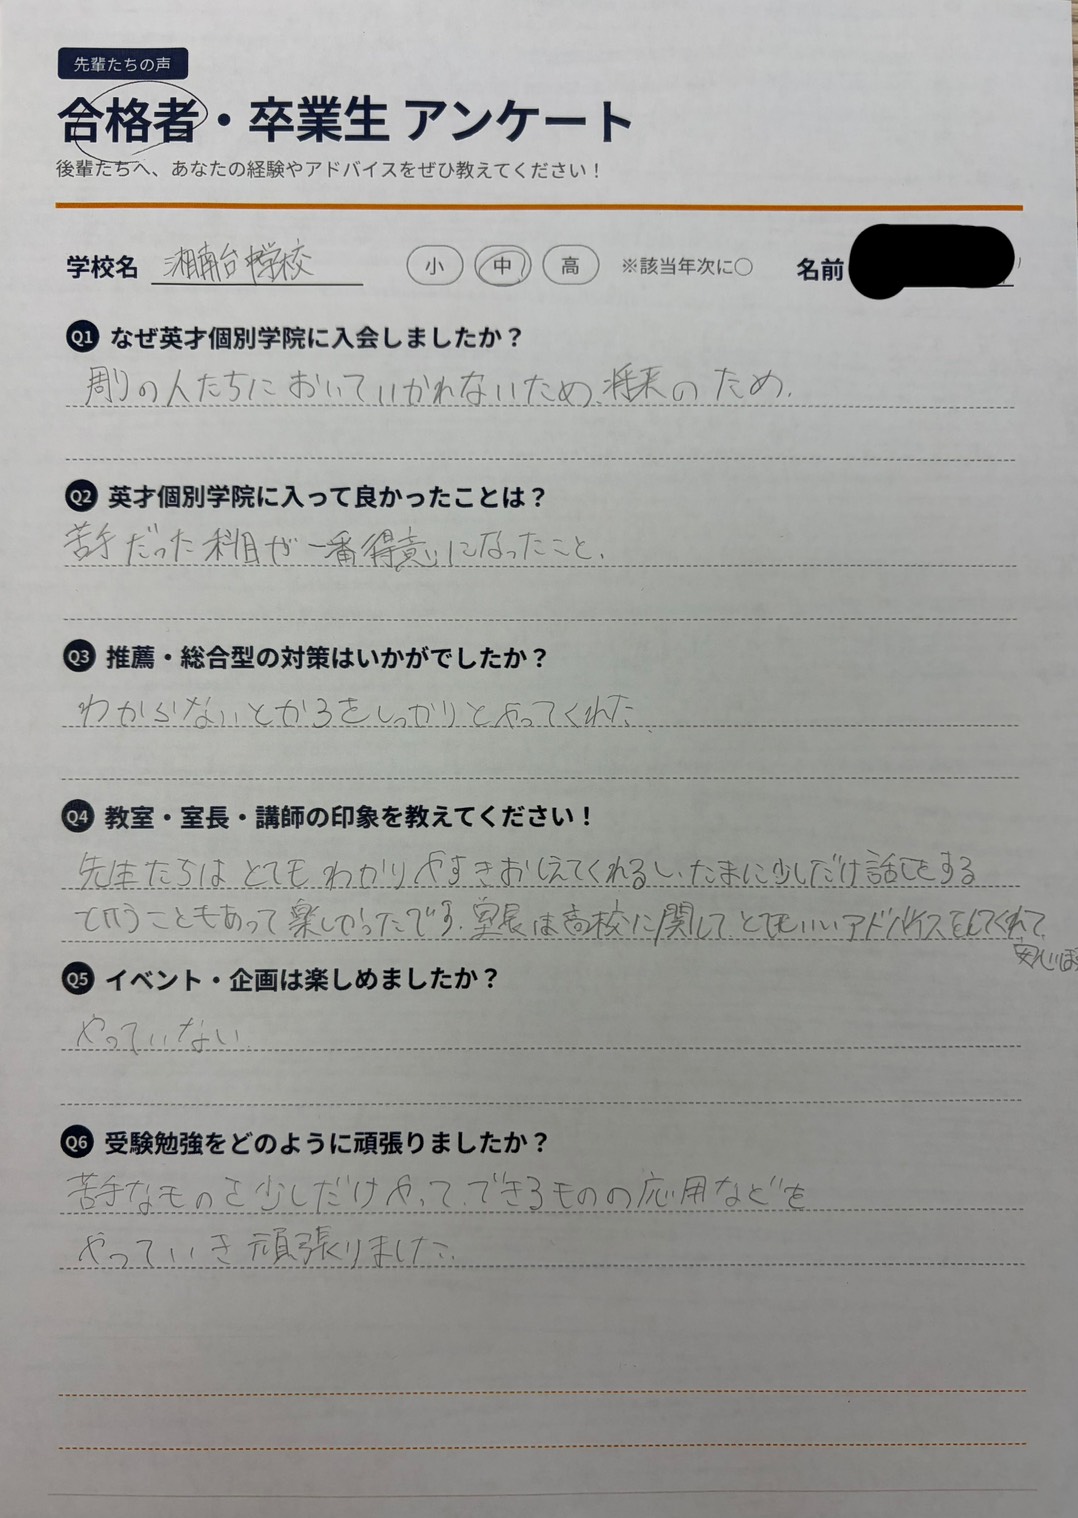 先輩たちの声
合格者・卒業生 アンケート
後輩たちへ、あなたの経験やアドバイスをぜひ教えてください！
学校名 湘南台中学校 小 中 高 ※該当年次に○ 名前
Q1 なぜ英才個別学院に入会しましたか？
周りの人たちにおいていかれないため、将来のため、
Q2 英才個別学院に入って良かったことは？
苦手だった科目が一番得意になったこと、
Q3 推薦・総合型の対策はいかがでしたか？
わからないところをしっかりとやってくれた
Q4 教室・室長・講師の印象を教えてください！
先生たちはとてもわかりやすきおしえてくれるし、たまに少しだけ話しをする
こともあって楽しかったです。室長は高校に関してとてもいいアドバイスをしてくれて
Q5 イベント・企画は楽しめましたか？
やっていない
Q6 受験勉強をどのように頑張りましたか？
苦手なものを少しだけやって、できるものの応用などを
やっていき頑張りました。